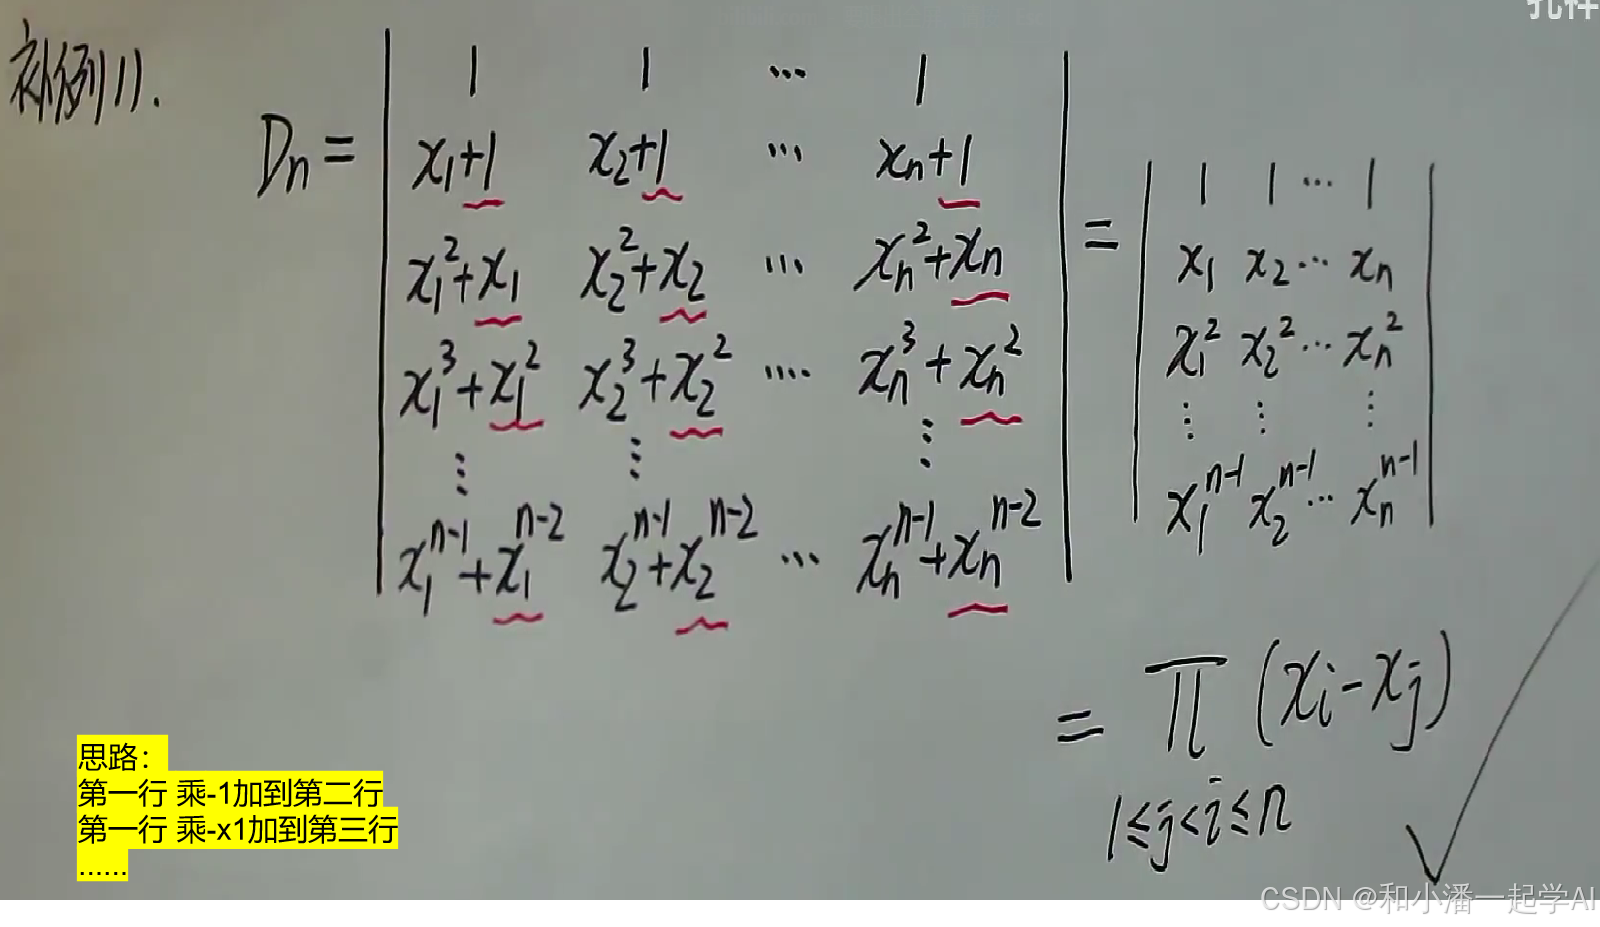 补例11.
D_n = | 1 1 ... 1 |
| x_1+1 x_2+1 ... x_n+1 |
| x_1^2+x_1 x_2^2+x_2 ... x_n^2+x_n |
| x_1^3+x_1^2 x_2^3+x_2^2 .... x_n^3+x_n^2 |
| ⋮ ⋮ ⋮ |
| x_1^{n-1}+x_1^{n-2} x_2^{n-1}+x_2^{n-2} ... x_n^{n-1}+x_n^{n-2} |
= | 1 1 ... 1 |
| x_1 x_2 ... x_n |
| x_1^2 x_2^2 ... x_n^2 |
| ⋮ ⋮ ⋮ |
| x_1^{n-1} x_2^{n-1} ... x_n^{n-1} |
= ∏ (x_i-x_j)
1≤j<i≤n
思路：
第一行 乘-1加到第二行
第一行 乘-x1加到第三行
......
CSDN @和小潘一起学AI